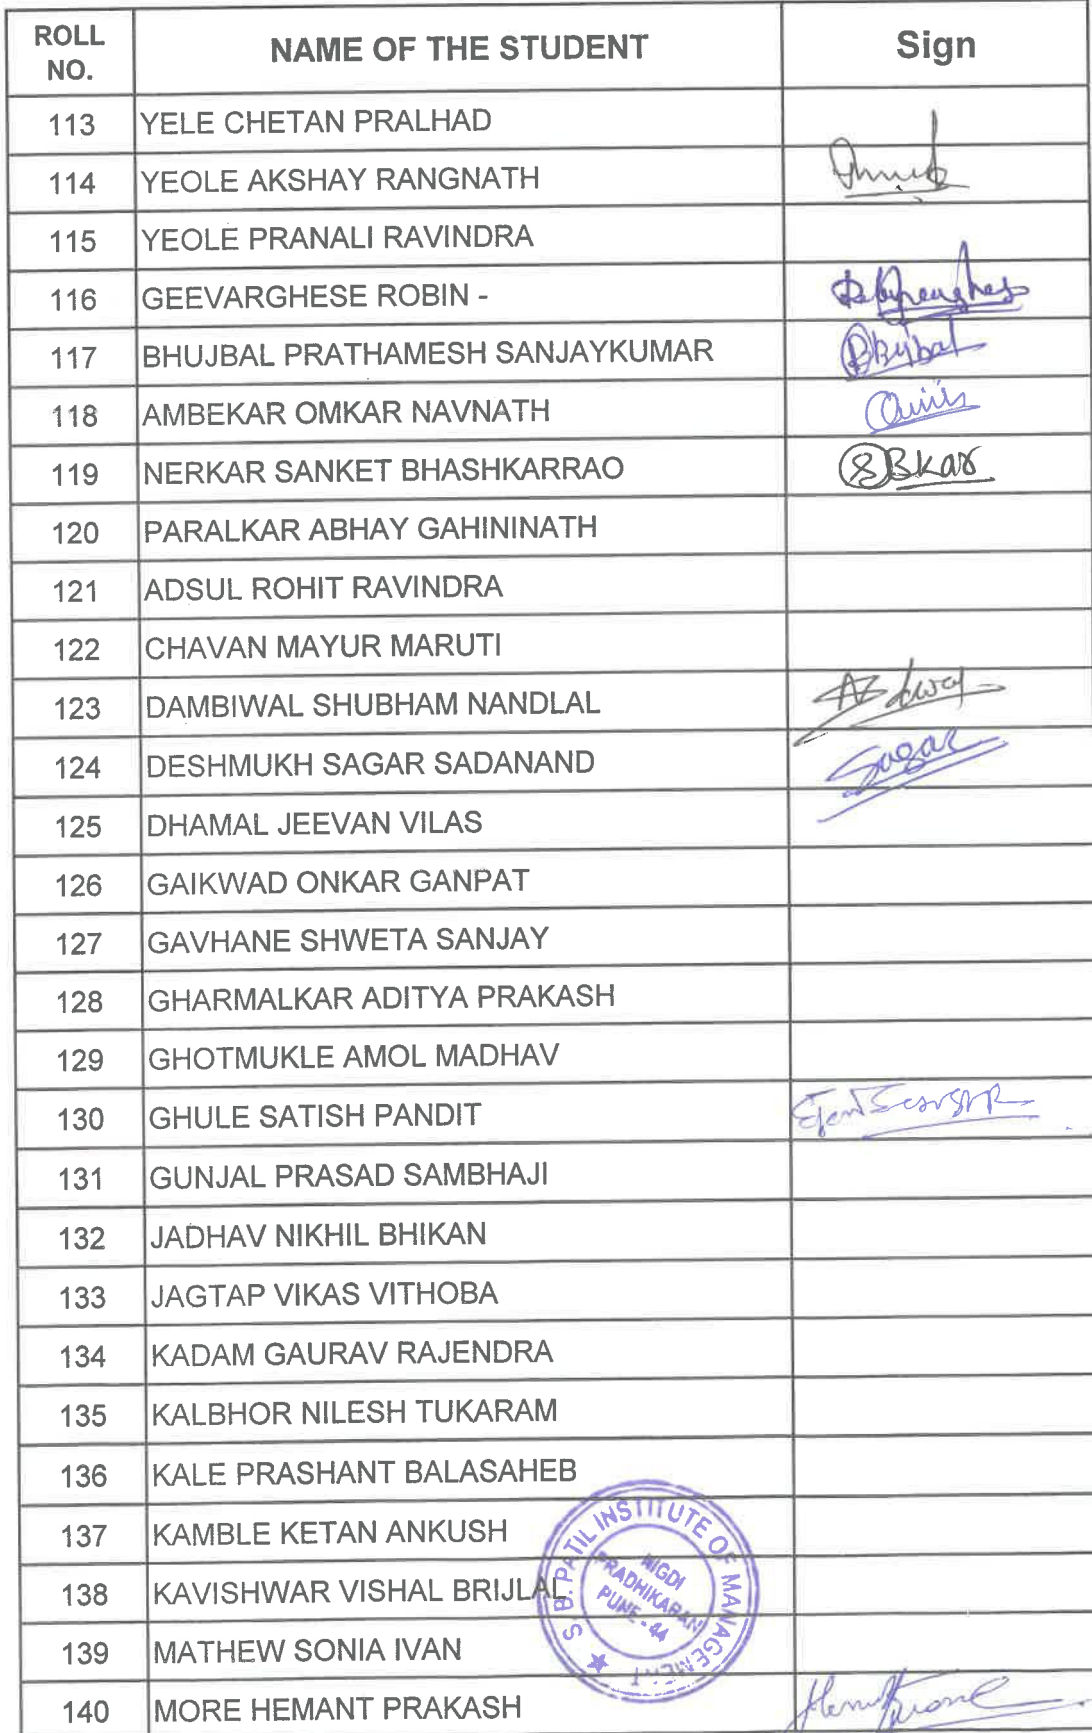 ROLL NO. NAME OF THE STUDENT Sign
113 YELE CHETAN PRALHAD
114 YEOLE AKSHAY RANGNATH
115 YEOLE PRANALI RAVINDRA
116 GEEVARGHESE ROBIN -
117 BHUJBAL PRATHAMESH SANJAYKUMAR Bhujbal
118 AMBEKAR OMKAR NAVNATH
119 NERKAR SANKET BHASHKARRAO SBKar
120 PARALKAR ABHAY GAHININATH
121 ADSUL ROHIT RAVINDRA
122 CHAVAN MAYUR MARUTI
123 DAMBIWAL SHUBHAM NANDLAL
124 DESHMUKH SAGAR SADANAND Sagar
125 DHAMAL JEEVAN VILAS
126 GAIKWAD ONKAR GANPAT
127 GAVHANE SHWETA SANJAY
128 GHARMALKAR ADITYA PRAKASH
129 GHOTMUKLE AMOL MADHAV
130 GHULE SATISH PANDIT
131 GUNJAL PRASAD SAMBHAJI
132 JADHAV NIKHIL BHIKAN
133 JAGTAP VIKAS VITHOBA
134 KADAM GAURAV RAJENDRA
135 KALBHOR NILESH TUKARAM
136 KALE PRASHANT BALASAHEB
137 KAMBLE KETAN ANKUSH
138 KAVISHWAR VISHAL BRIJLAL
139 MATHEW SONIA IVAN
140 MORE HEMANT PRAKASH
S. B. PATIL INSTITUTE OF MANAGEMENT
NIGDI
PRADHIKARAN
PUNE - 44